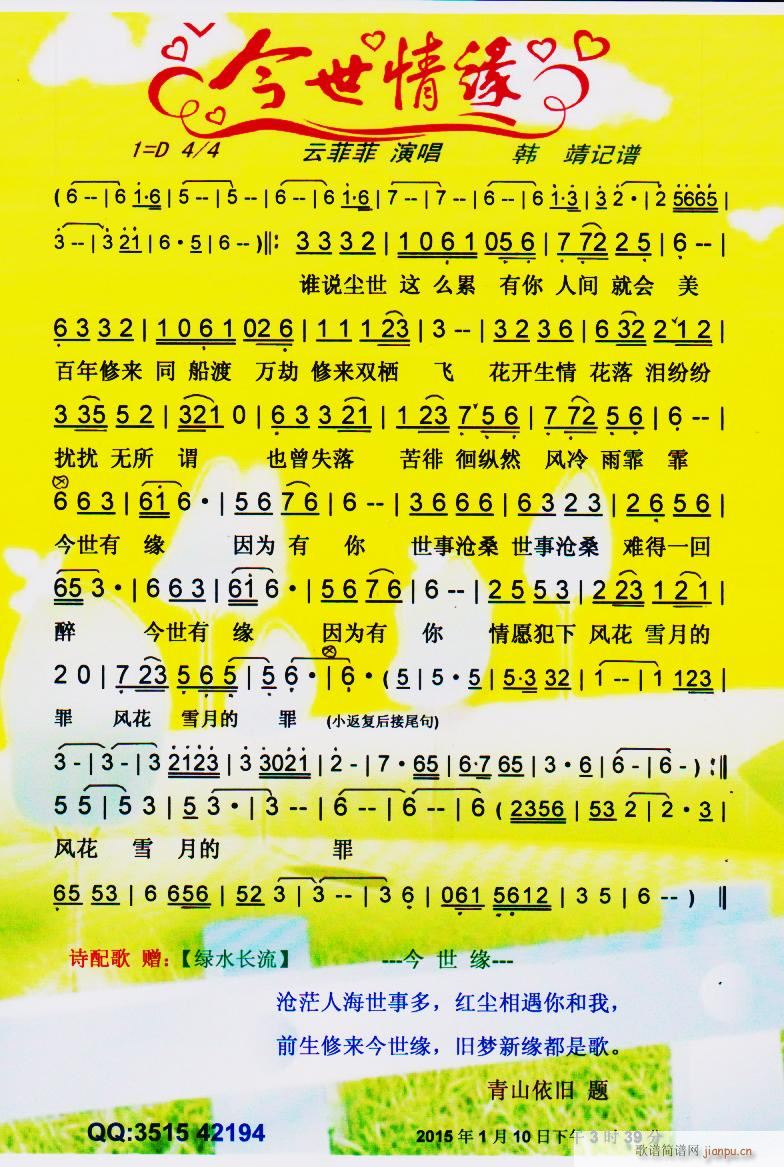 今世情缘
1=D 4/4 云菲菲 演唱 韩 靖记谱
( 6 -- | 6 1·6 | 5 -- | 5 -- | 6 -- | 6 1·6 | 7 -- | 7 -- | 6 -- | 6 1·3 | 3 2· | 2 5665 |
3 -- | 3 21 | 6·5 | 6 -- ) ‖: 3 3 3 2 | 1 0 6 1 0 5 6 | 7 7 2 2 5 | 6 -- |
谁说尘世 这 么累 有你 人间 就会 美
6 3 3 2 | 1 0 6 1 0 2 6 | 1 1 1 2 3 | 3 -- | 3 2 3 6 | 6 3 2 2 ˅ 1 2 |
百年修来 同 船渡 万劫 修来双栖 飞 花开生情 花落 泪纷纷
3 3 5 5 2 | 3 2 1 0 | 6 3 3 2 1 | 1 2 3 7 ˅ 5 6 | 7 7 2 5 6 | 6 -- |
扰扰 无所 谓 也曾失落 苦徘 徊纵然 风冷 雨霏 霏
6 6 3 | 6 1 6 · | 5 6 7 6 | 6 -- | 3 6 6 6 | 6 3 2 3 | 2 6 5 6 |
今世有 缘 因为 有 你 世事沧桑 世事沧桑 难得一回
6 5 3 · | 6 6 3 | 6 1 6 · | 5 6 7 6 | 6 -- | 2 5 5 3 | 2 2 3 1 2 1 |
醉 今世有 缘 因为有 你 情愿犯下 风花 雪月的
2 0 | 7 2 3 5 6 5 | 5 6 · | 6 · ( 5 | 5 · 5 | 5 · 3 3 2 | 1 -- | 1 1 2 3 |
罪 风花 雪月的 罪 (小返复后接尾句)
3 - | 3 - | 3 2123 | 3 3021 | 2 - | 7 · 65 | 6·7 65 | 3 · 3 | 6 - | 6 - ) :‖
5 5 | 5 3 | 5 3 · | 3 -- | 6 -- | 6 -- | 6 ( 2356 | 53 2 | 2 · 3 |
风花 雪 月的 罪
65 53 | 6 656 | 52 3 | 3 -- | 3 6 | 061 5612 | 3 5 | 6 -- ) ‖
诗配歌 赠:【绿水长流】 ---今 世 缘---
沧茫人海世事多，红尘相遇你和我，
前生修来今世缘，旧梦新缘都是歌。
青山依旧 题
QQ:3515 42194 2015 年 1 月 10 日下午 3 时 39 分
歌谱简谱网 jianpu.cn